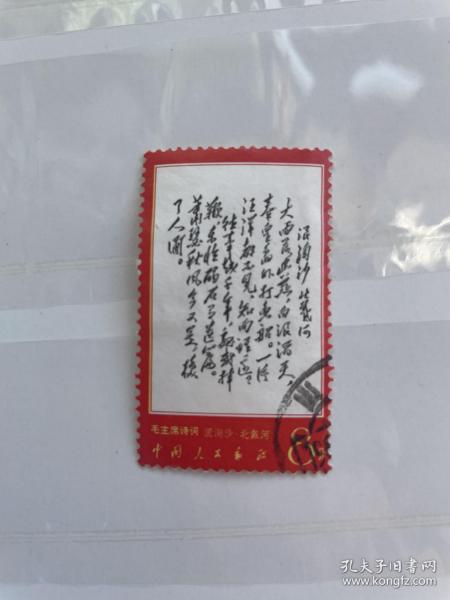 浪淘沙 北戴河
大雨落幽燕，白浪滔天，
秦皇島外打魚船。一片
汪洋都不見，知向誰邊？
往事越千年，魏武揮
鞭，東臨碣石有遺篇。
蕭瑟秋風今又是，換
了人間。
毛主席诗词 浪淘沙·北戴河
中国人民邮政 8
孔夫子旧书网
www.kongfz.com